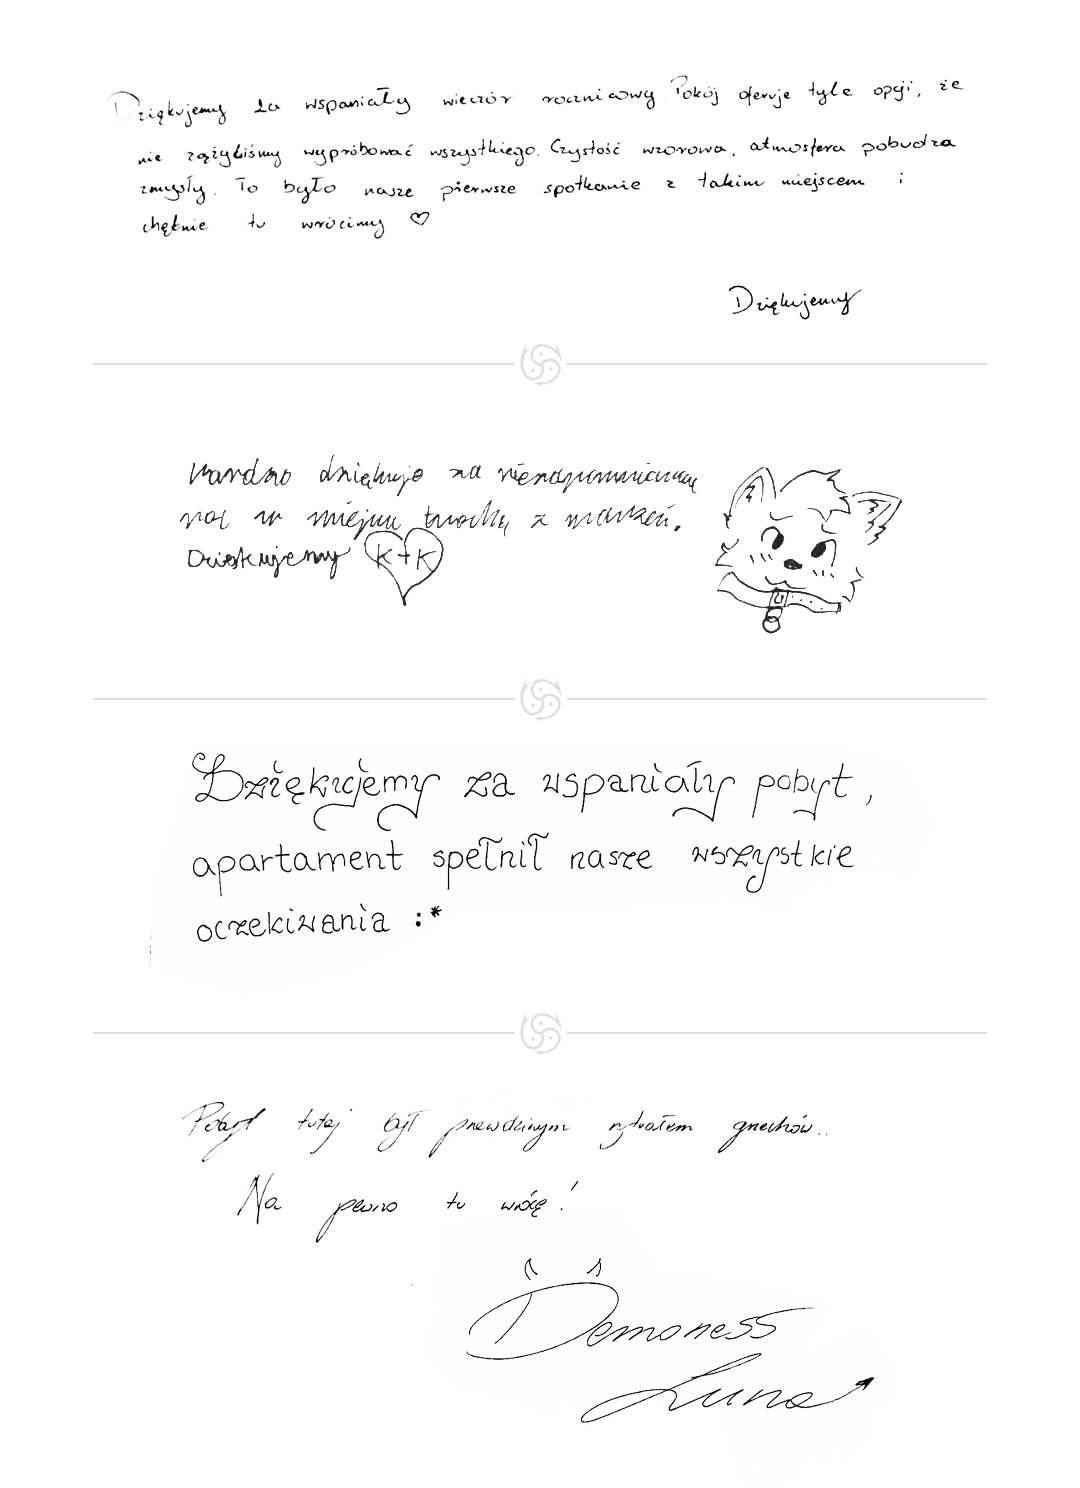 Dziękujemy za wspaniały wieczór rocznicowy. Pokój oferuje tyle opcji, że
nie zążyliśmy wypróbować wszystkiego. Czystość wzorowa, atmosfera pobudza
zmysły. To było nasze pierwsze spotkanie z takim miejscem i
chętnie tu wrócimy ♡
Dziękujemy
Bardzo dziękuję za niezapomnianą
noc w miejscu trochę z marzeń.
Dziękujemy K+K
Dziękujemy za wspaniały pobyt,
apartament spełnił nasze wszystkie
oczekiwania :*
Pobyt tutaj był prawdziwym rytuałem grzechów..
Na pewno tu wrócę!
Demoness
Luna